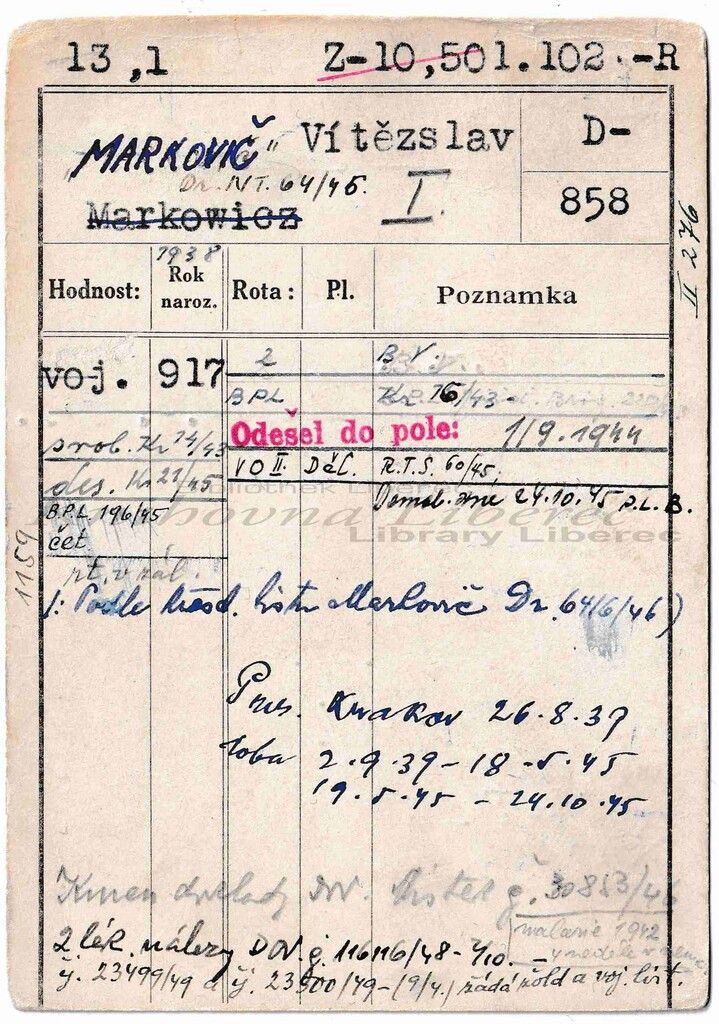 13,1 Z-10,501.102.-R
"MARKOVIČ" Vítězslav D-
Dr. NT. 64/45. I.
Markowicz 858
II 276
1938
Hodnost: Rok naroz. Rota: Pl. Poznamka
voj. 917 2 B.V.
BPL 16/43
Odešel do pole: 1/9.1944
srob. Kr 74/43
VO II. DĚL. R.T.S. 60/45.
des. Kr 21/45
24.10.45 P.L.B.
BPL 196/45
čet
Knihovna Liberec
Library Liberec
1159
rt. v zál.
1: Podle křesd. listu Markovič Dr. 64/6/46)
Pres. Krakov 26.8.39
Doba 2.9.39 - 18.5.45
19.5.45 - 24.10.45
Kmen doklady list č. 30853/46
malarie 1942
2 lék. nálezy DOV. č. 116116/48 - 4/10. -
čj. 23499/49 a čj. 23500/49 - (9/4.) žádá žold a voj. list.